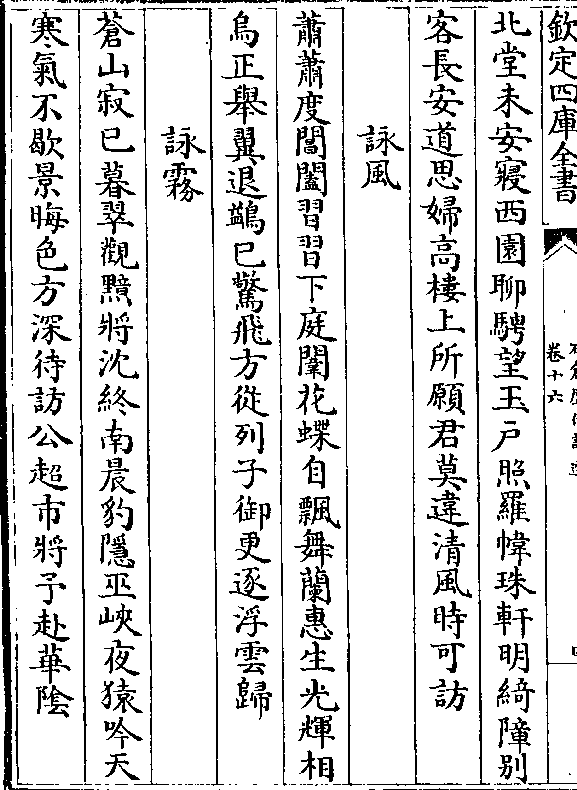 欽定四庫全書
卷十六
北堂未安寢西園聊騁望玉户照羅幃珠軒明綺障别
客長安道思婦高樓上所願君莫違清風時可訪
詠風
蕭蕭度閶闔習習下庭闈花蝶自飄舞蘭蕙生光輝相
烏正舉翼退鷁已驚飛方從列子御更逐浮雲歸
詠霧
蒼山寂已暮翠觀黯將沈終南晨豹隱巫峽夜猿吟天
寒氣不歇景晦色方深待訪公超市將予赴華陰